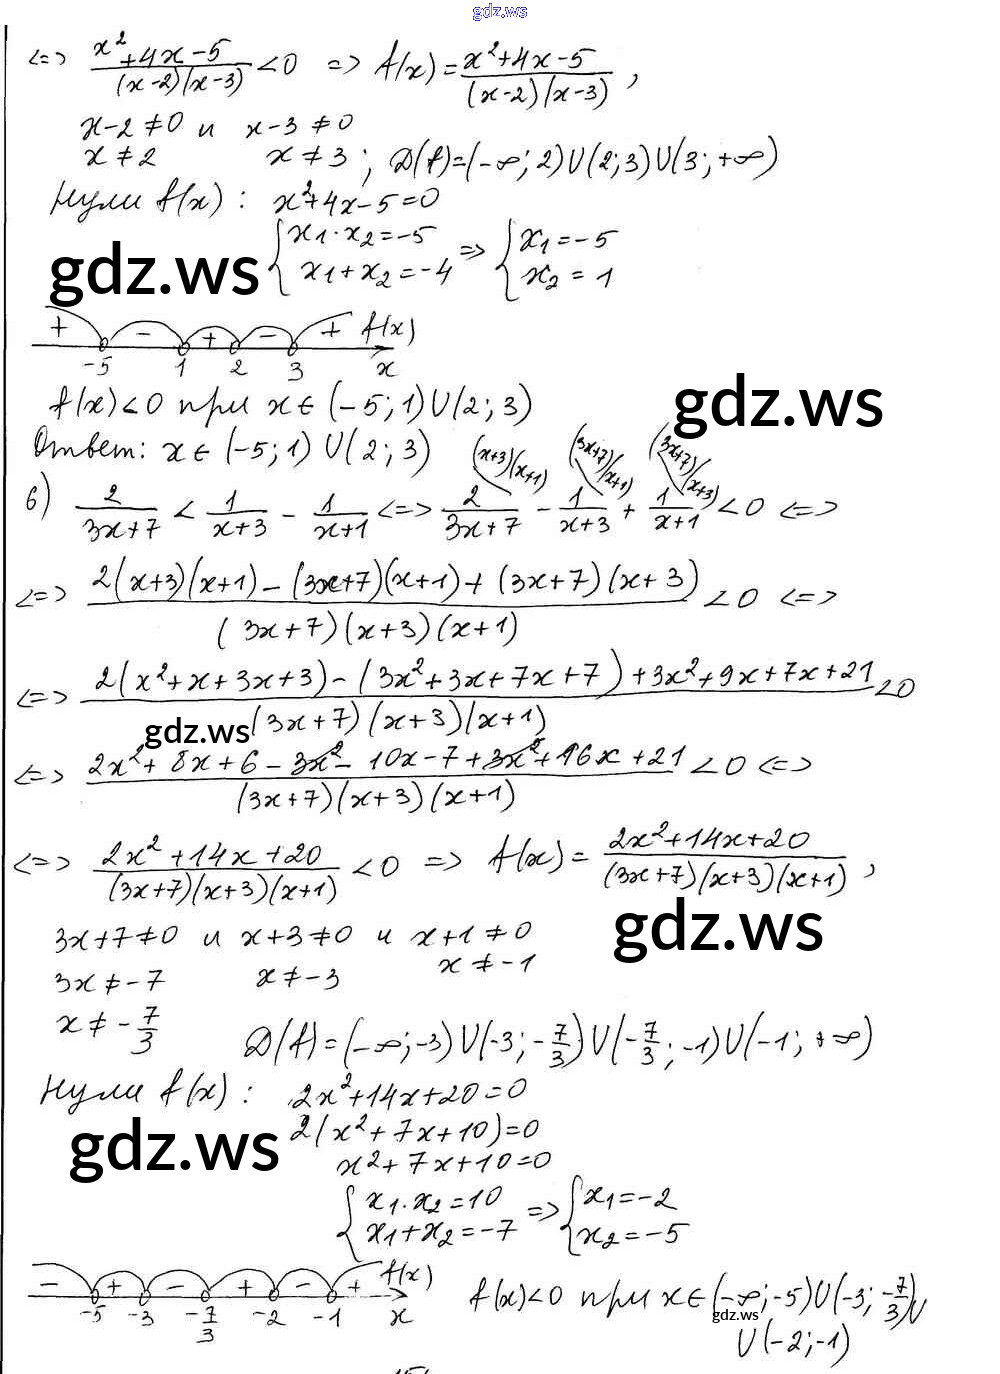 gdz.ws
<=> (x²+4x-5)/((x-2)(x-3)) < 0 => f(x) = (x²+4x-5)/((x-2)(x-3)),
x-2≠0 и x-3≠0
x≠2 x≠3; D(f)=(-∞; 2)U(2; 3)U(3; +∞)
Нули f(x): x²+4x-5=0
{x₁·x₂=-5 => {x₁=-5
{x₁+x₂=-4 {x₂=1
gdz.ws
+ - + - + f(x)
-5 1 2 3 x
f(x)<0 при x∈(-5; 1)U(2; 3)
gdz.ws
Ответ: x∈(-5; 1)U(2; 3)
(x+3)(x+1) (3x+7)(x+1) (3x+7)(x+3)
б) 2/(3x+7) < 1/(x+3) - 1/(x+1) <=> 2/(3x+7) - 1/(x+3) + 1/(x+1) < 0 <=>
<=> (2(x+3)(x+1)-(3x+7)(x+1)+(3x+7)(x+3))/((3x+7)(x+3)(x+1)) < 0 <=>
<=> (2(x²+x+3x+3)-(3x²+3x+7x+7)+3x²+9x+7x+21)/((3x+7)(x+3)(x+1)) < 0
gdz.ws
<=> (2x²+8x+6-3x²-10x-7+3x²+16x+21)/((3x+7)(x+3)(x+1)) < 0 <=>
<=> (2x²+14x+20)/((3x+7)(x+3)(x+1)) < 0 => f(x) = (2x²+14x+20)/((3x+7)(x+3)(x+1)),
gdz.ws
3x+7≠0 и x+3≠0 и x+1≠0
3x≠-7 x≠-3 x≠-1
x≠-7/3 D(f)=(-∞; -3)U(-3; -7/3)U(-7/3; -1)U(-1; +∞)
Нули f(x): 2x²+14x+20=0
2(x²+7x+10)=0
gdz.ws
x²+7x+10=0
{x₁·x₂=10 => {x₁=-2
{x₁+x₂=-7 {x₂=-5
- + - + - + f(x)
-5 -3 -7/3 -2 -1 x
f(x)<0 при x∈(-∞; -5)U(-3; -7/3)U
gdz.ws
U(-2; -1)